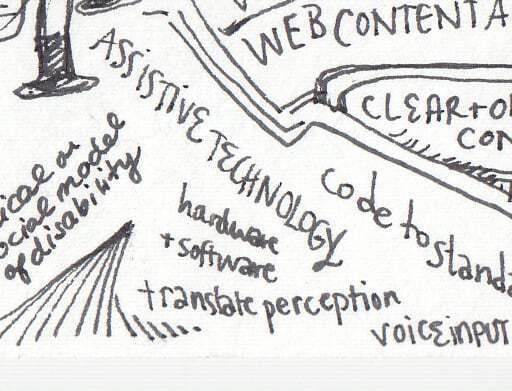 WEB CONTENT A
ASSISTIVE TECHNOLOGY
CLEAR + O
CON
ical or
ocial model
of disability
code to standa
hardware
+ software
translate perception
voice input